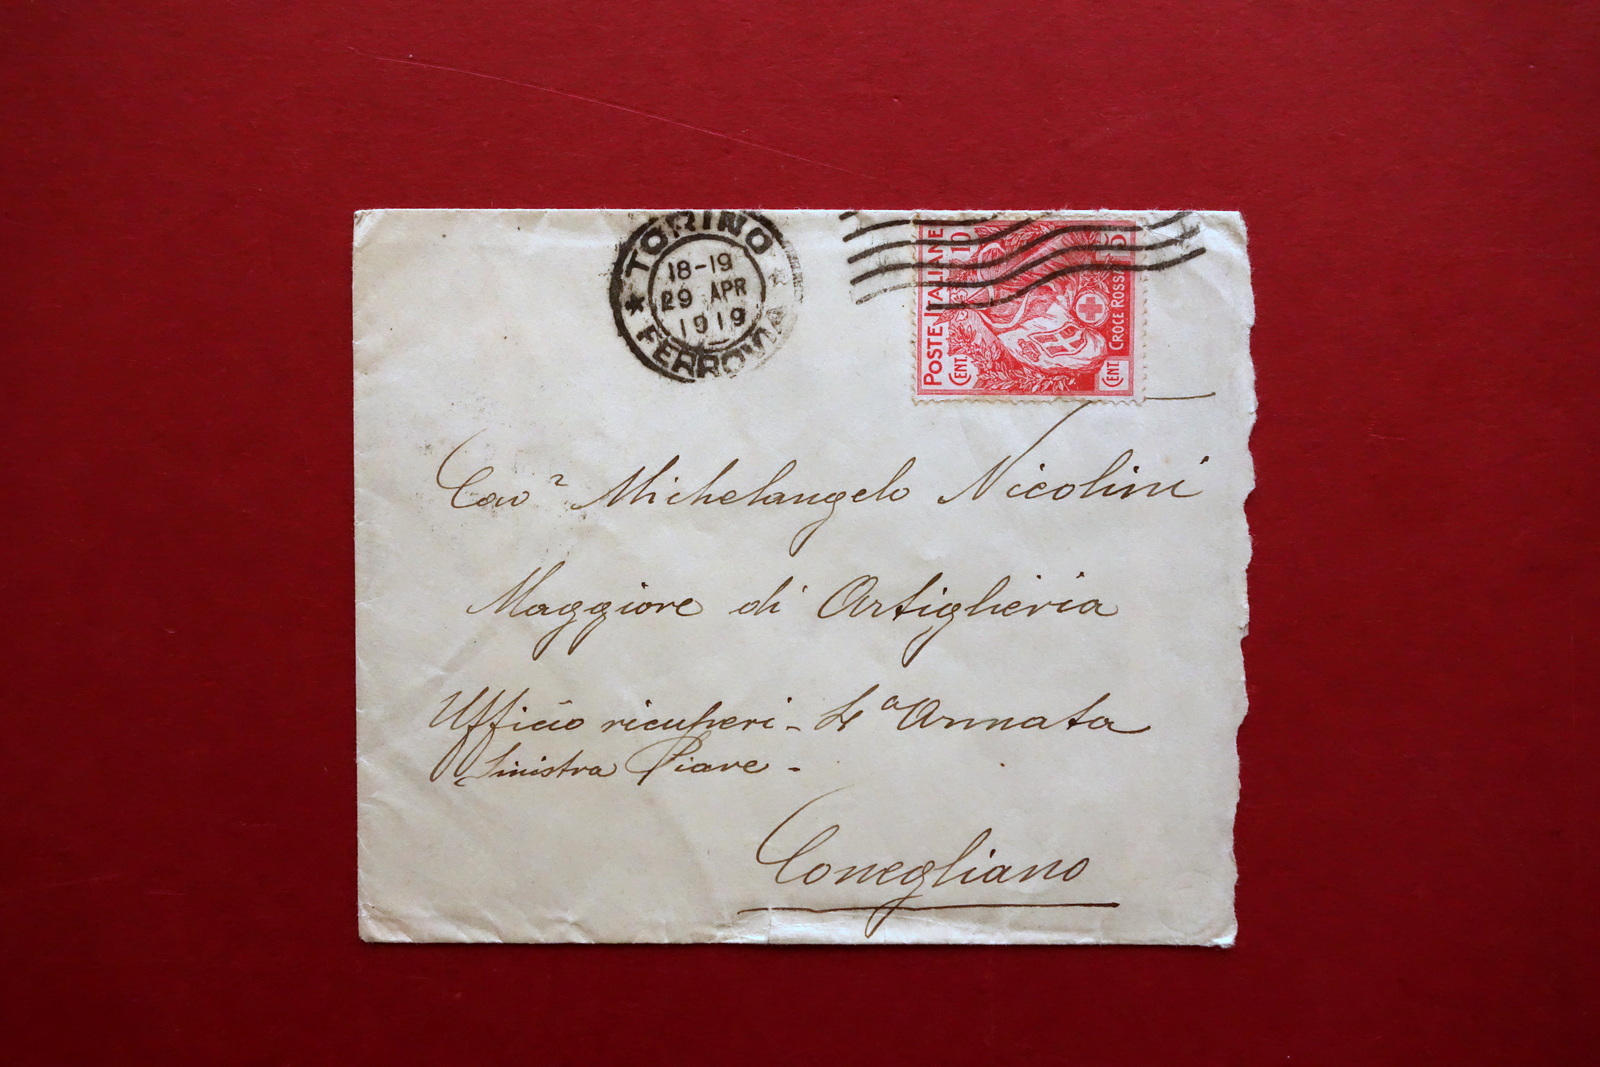 TORINO
18-19
29 APR
1919
FERROVIA
POSTE ITALIANE
CENT. 10
CENT 5
CROCE ROSSA
Cav.r Michelangelo Nicolini
Maggiore di Artiglieria
Ufficio ricuperi - 4a Armata
Sinistra Piave -
Conegliano